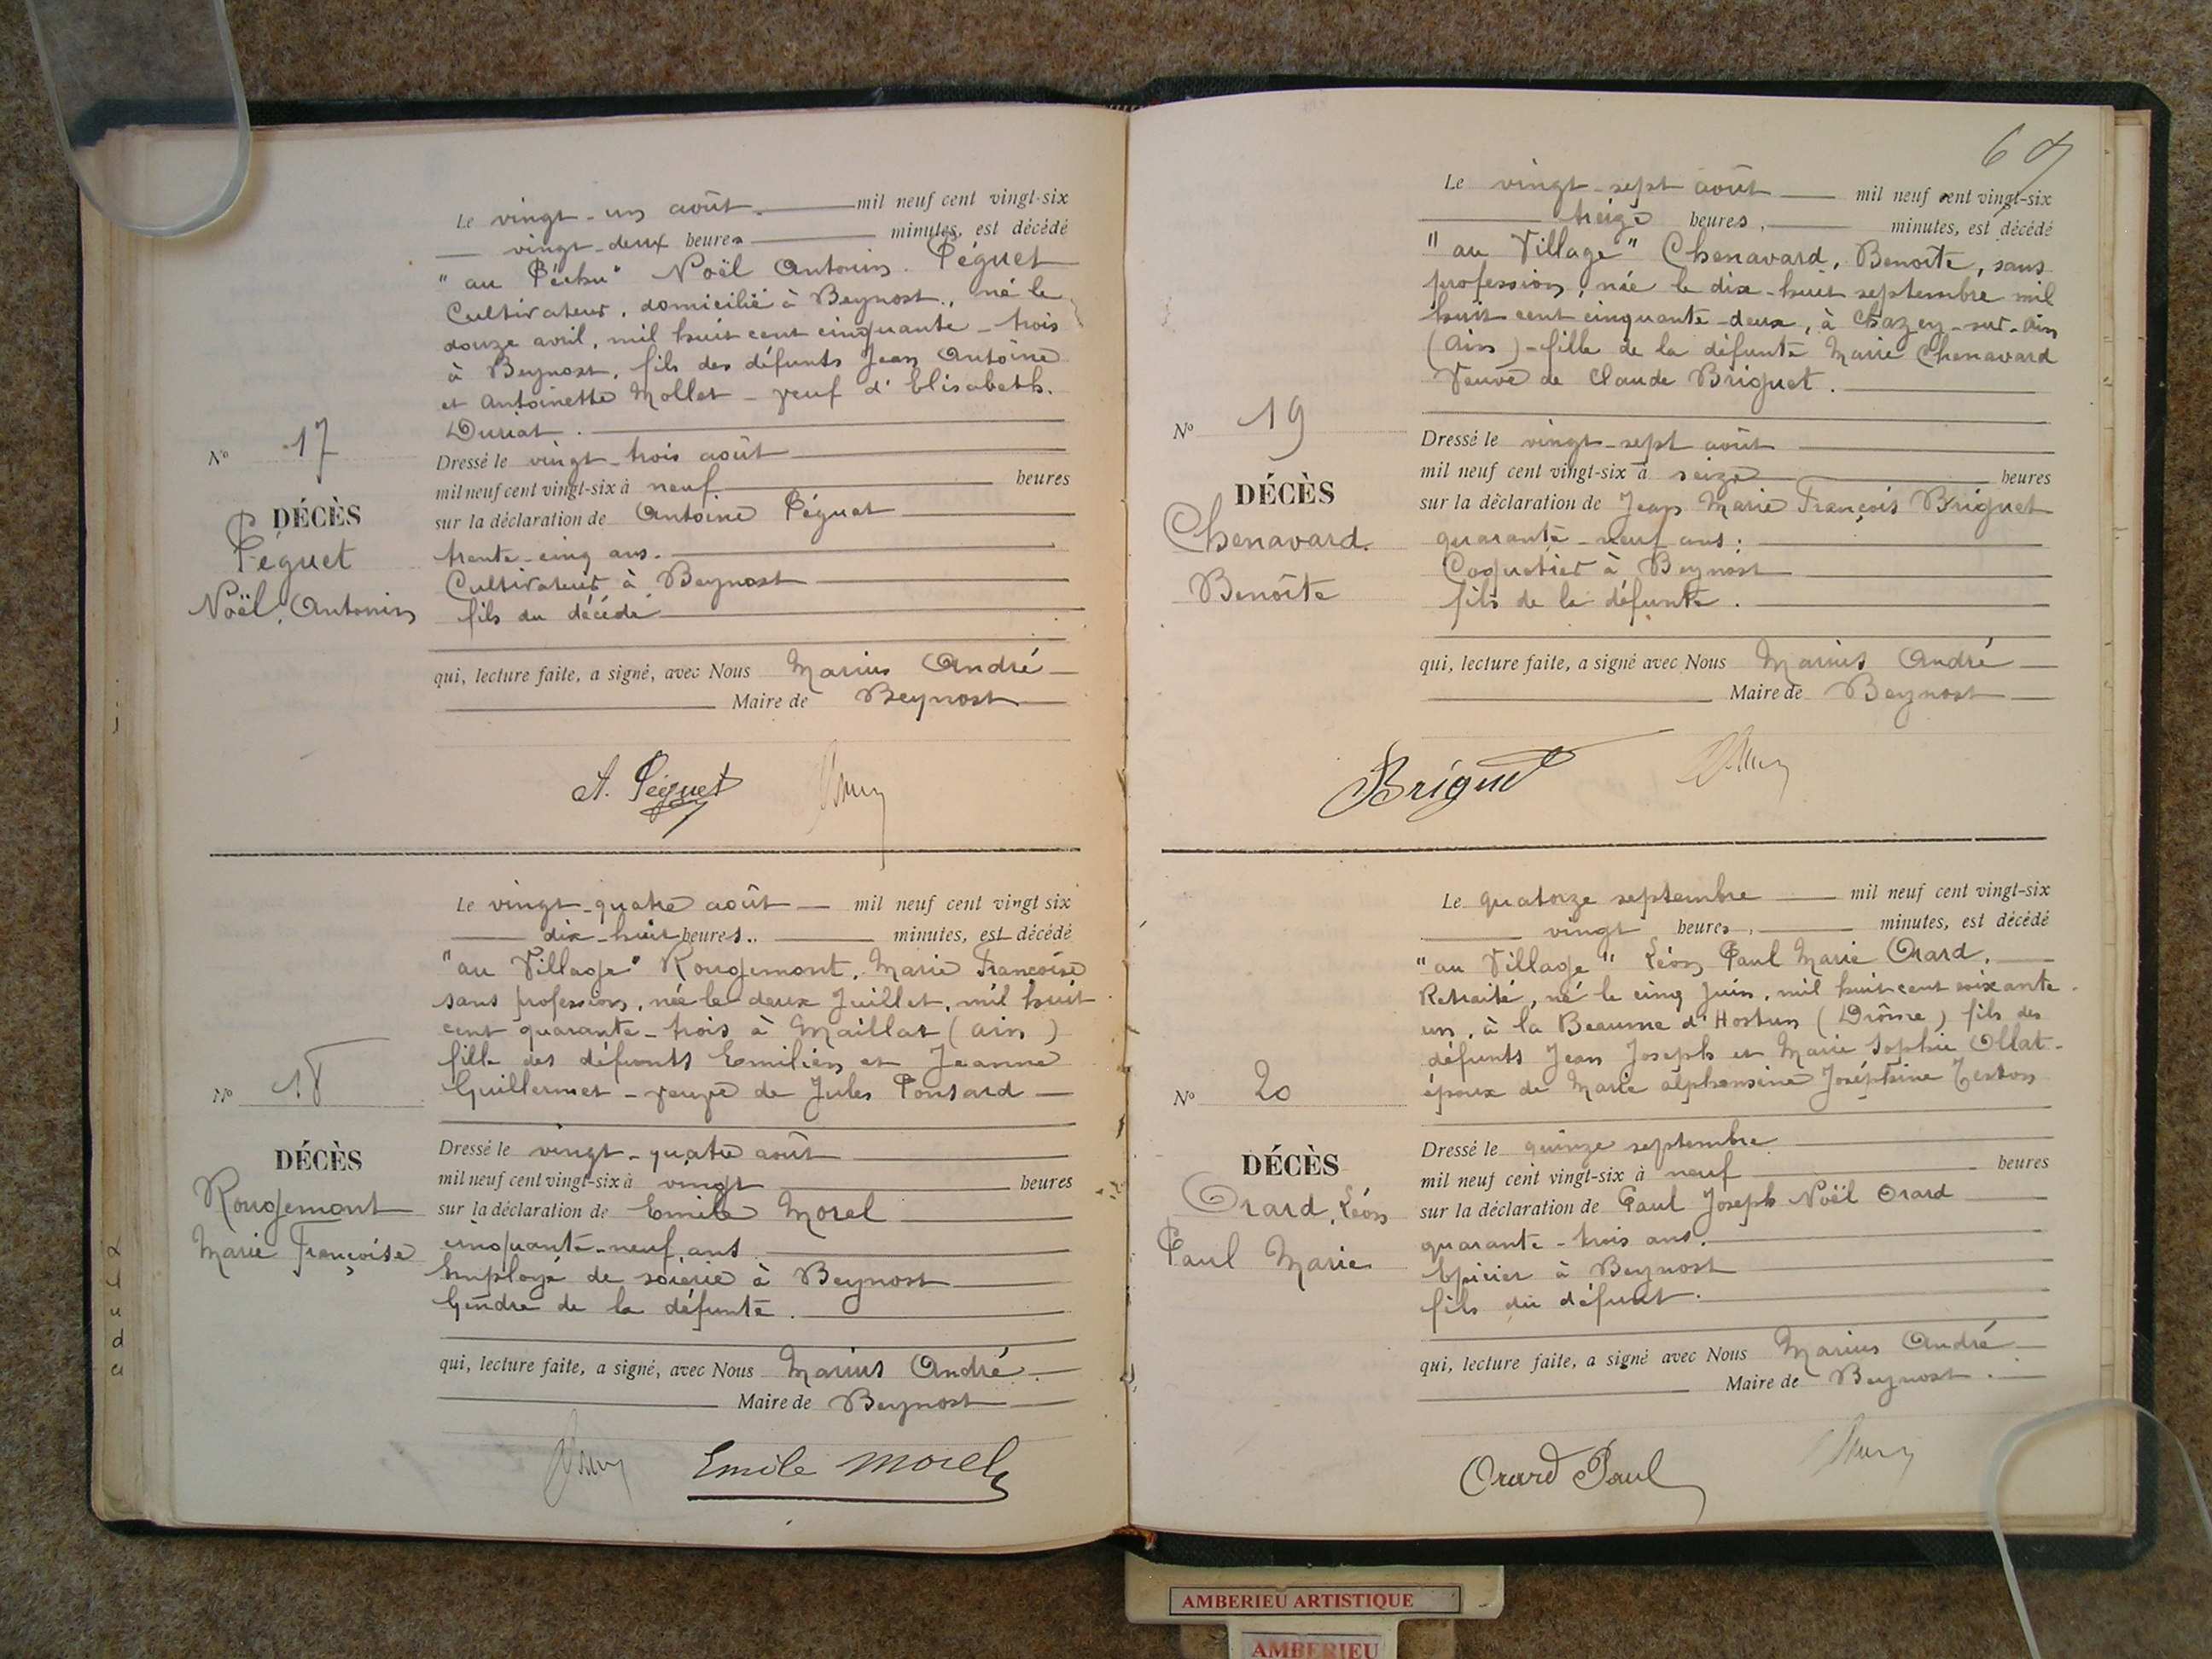 Le vingt-un août. mil neuf cent vingt-six
vingt-deux heures minutes, est décédé
"au Péchu" Noël Antonin. Péguet
Cultivateur, domicilié à Beynost, né le
douze avril, mil huit cent cinquante-trois
à Beynost, fils des défunts Jean Antoine
et Antoinette Mollet - veuf d'Elisabeth.
Duriat.
N° 17
DÉCÈS
Péguet
Noël, Antonin
Dressé le vingt-trois août
mil neuf cent vingt-six à neuf heures
sur la déclaration de Antoine Péguet
trente-cinq ans.
Cultivateur à Beynost
fils du décédé
qui, lecture faite, a signé, avec Nous Marius André
Maire de Beynost
A. Péguet
Le vingt-quatre août mil neuf cent vingt six
dix-huit heures.. minutes, est décédé
"au Village" Rougemont, Marie Françoise
sans profession, née le deux Juillet, mil huit
cent quarante-trois à Maillat (Ain)
fille des défunts Emilien et Jeanne
Guillermet - veuve de Jules Ponsard
N° 18
DÉCÈS
Rougemont
Marie Françoise
Dressé le vingt-quatre août
mil neuf cent vingt-six à vingt heures
sur la déclaration de Emile Morel
cinquante-neuf ans
Employé de soierie à Beynost
Gendre de la défunte.
qui, lecture faite, a signé, avec Nous Marius André.
Maire de Beynost
Emile Morel
Le vingt-sept août mil neuf cent vingt-six
treize heures, minutes, est décédé
"au Village" Chenavard, Benoîte, sans
profession, née le dix-huit septembre mil
huit cent cinquante-deux, à Chazey-sur-Ain
(Ain) - fille de la défunte Marie Chenavard
Veuve de Claude Briguet.
N° 19
DÉCÈS
Chenavard.
Benoîte
Dressé le vingt-sept août
mil neuf cent vingt-six à seize heures
sur la déclaration de Jean Marie François Briguet
quarante-neuf ans;
Coquetier à Beynost
fils de la défunte.
qui, lecture faite, a signé avec Nous Marius André
Maire de Beynost
Briguet
Le quatorze septembre mil neuf cent vingt-six
vingt heures, minutes, est décédé
"au Village" Léon Paul Marie Orard.
Retraité, né le cinq Juin, mil huit cent soixante-
un, à la Beaume d'Hostun (Drôme) fils des
défunts Jean Joseph et Marie Sophie Ollat-
époux de Marie Alphonsine Joséphine Teston
N° 20
DÉCÈS
Orard, Léon
Paul Marie
Dressé le quinze septembre
mil neuf cent vingt-six à neuf heures
sur la déclaration de Paul Joseph Noël Orard
quarante-trois ans.
Epicier à Beynost
fils du défunt.
qui, lecture faite, a signé avec Nous Marius André
Maire de Beynost.
Orard Paul
AMBERIEU ARTISTIQUE
AMBERIEU